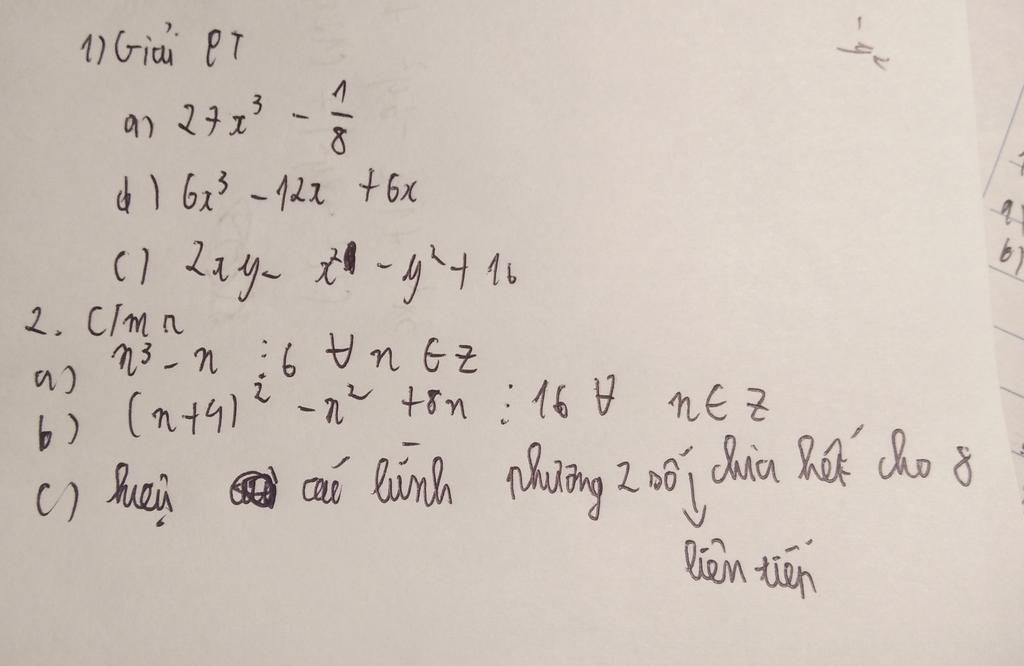 1) Giải PT
a) 27x³ - 1/8
b) 6x³ - 12x + 6x
c) 2xy - x² - y² + 16
2. C/m r
a) n³ - n ⋮ 6 ∀ n ∈ Z
b) (n+4)² - n² + 8n ⋮ 16 ∀ n ∈ Z
c) hiệu các bình phương 2 số chia hết cho 8
liên tiếp